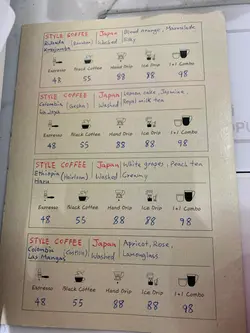 STYLE COFFEE Japan Blood Orange, Marmalade
Rwanda (Bourbon) Washed Silky
Espresso Black Coffee Hand Drip Ice Drip 1+1 Combo
48 55 88 88 98
STYLE COFFEE Japan
Colombia Washed Royal milk tea
Espresso Black Coffee Hand Drip Ice Drip 1+1 Combo
48 55 88 88 98
STYLE COFFEE Japan White grapes, Peach tea
Ethiopia (Heirloom) Washed Creamy
Espresso Black Coffee Hand Drip Ice Drip 1+1 Combo
48 55 88 88 98
STYLE COFFEE Japan Apricot, Rose,
Colombia Washed Lemonglass
Espresso Black Coffee Hand Drip Ice Drip 1+1 Combo
48 55 88 88 98